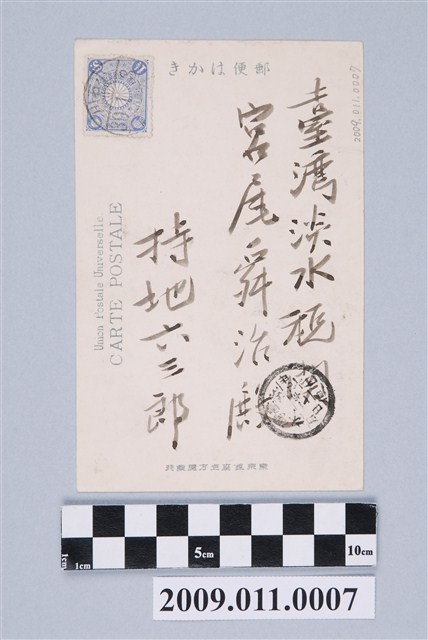 郵便はかき
2009.011.0007
臺灣淡水税
宮尾舜治殿
持地六三郎
Union Postale Universelle
CARTE POSTALE
1cm 1cm 5cm 10cm
2009.011.0007